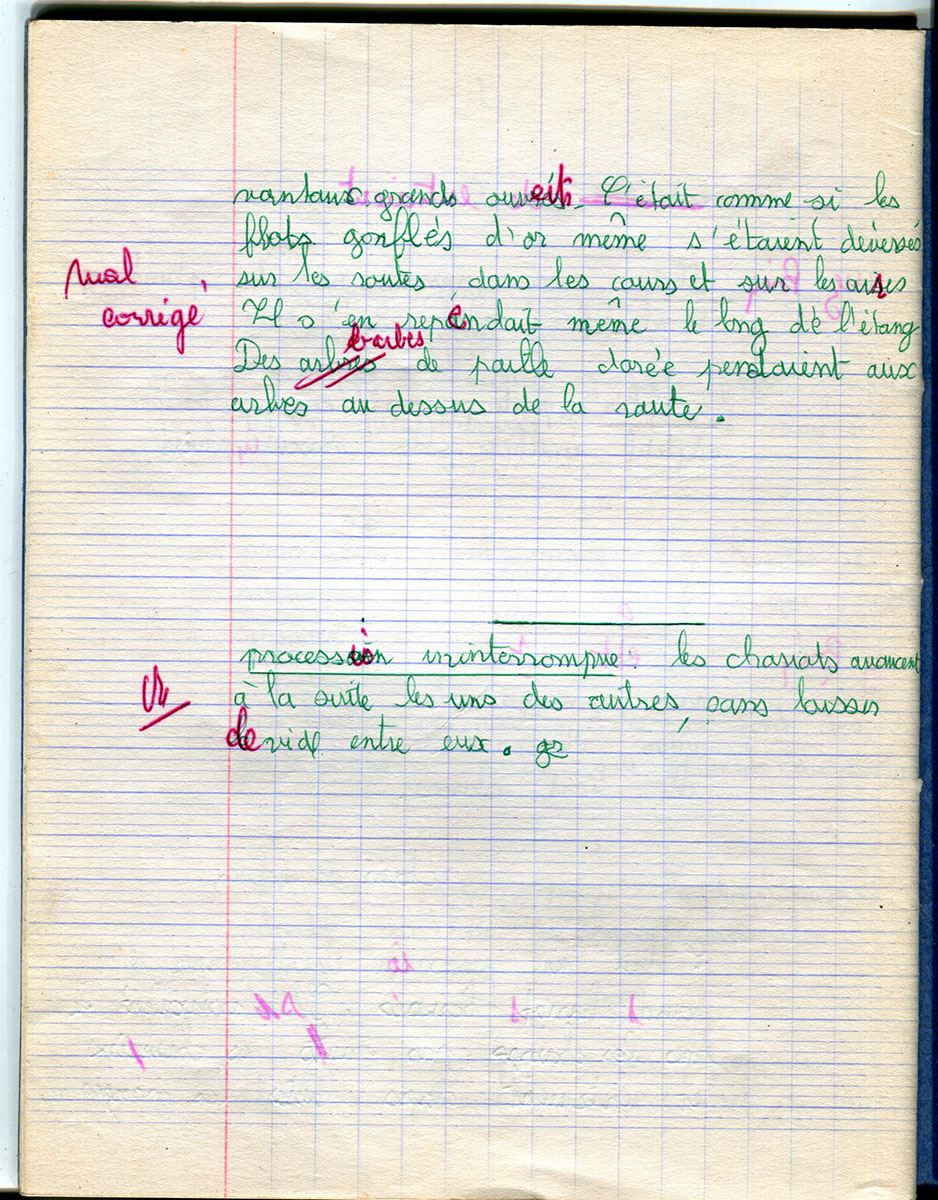 vantaux grands ouverts. C'était comme si les
flots gonflés d'or même s'étaient déversés
mal sur les routes, dans les cours et sur les aires
corrigé Il s'en rependait même le long de l'étang
barbes
Des arbres de paille dorée pendaient aux
arbres au dessus de la route.
procession ininterrompue: les chariots avancent
Vu à la suite les uns des autres, sans laisser
de vide entre eux.